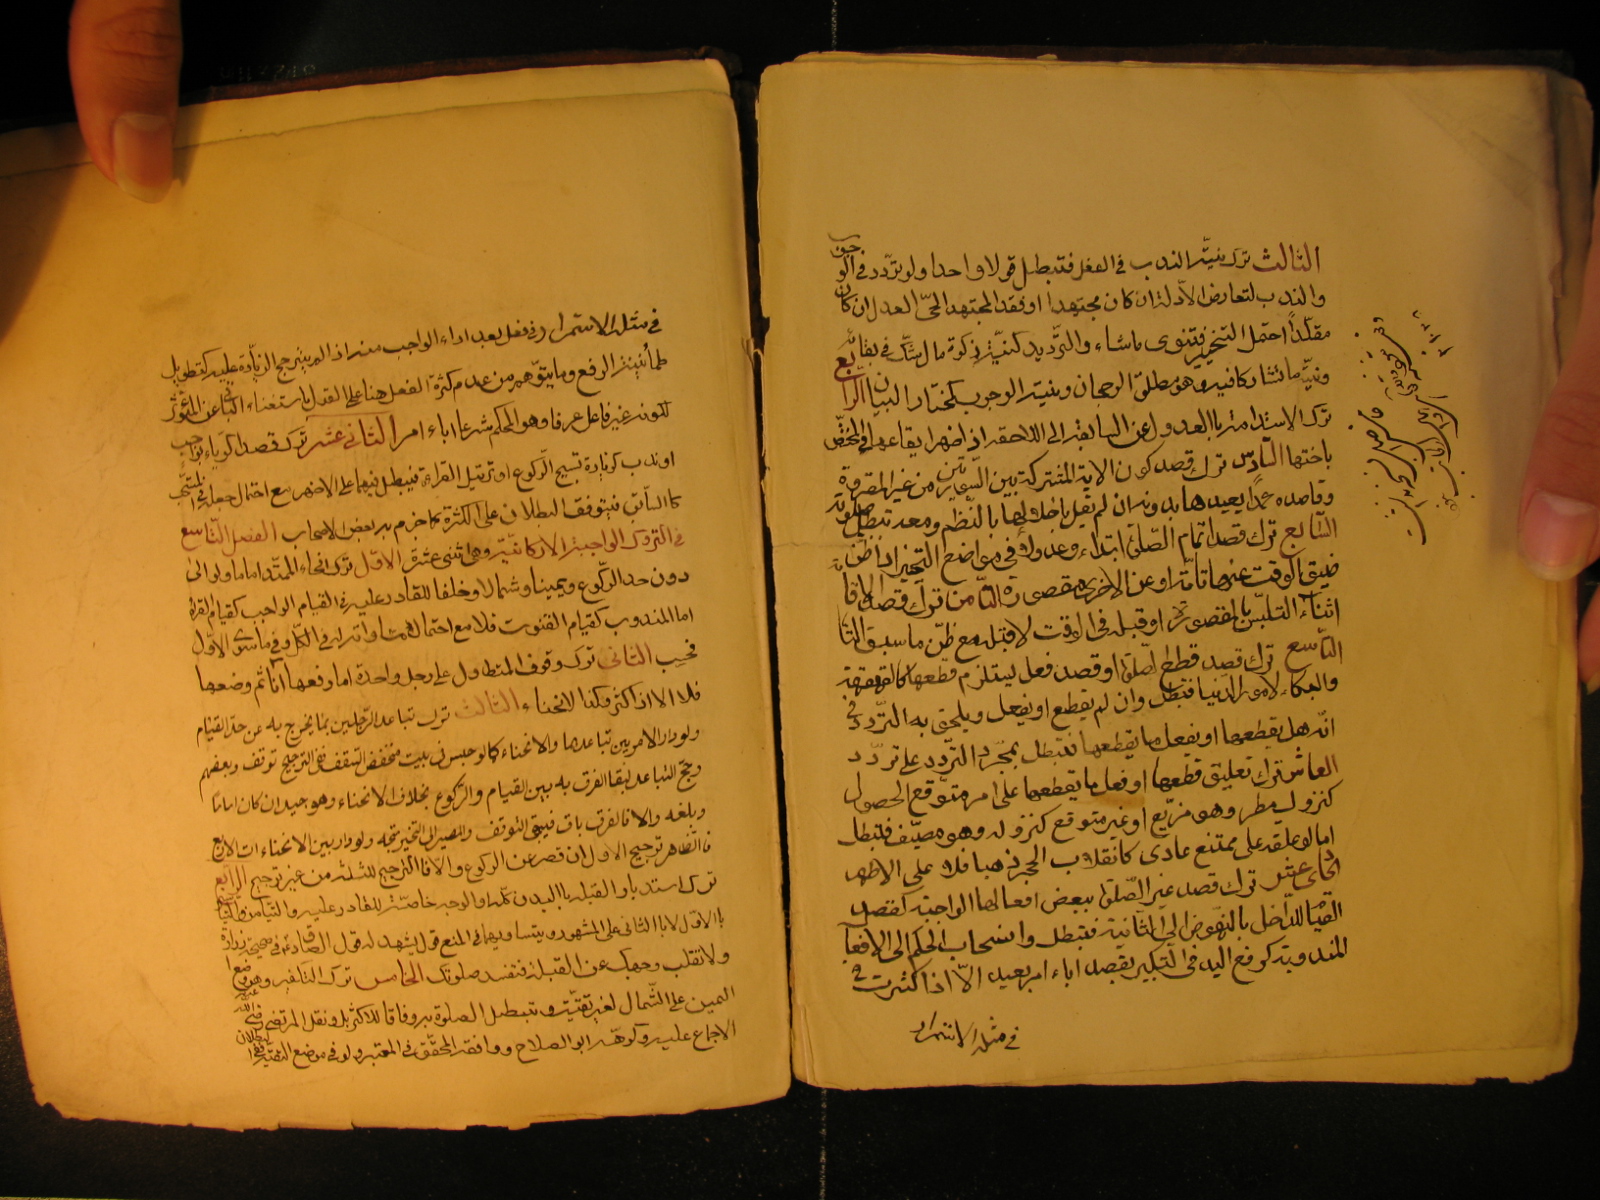 الثالث ترك نية الندب في الفعل فتبطل قولا واحدا ولو تردد في الوجوب
والندب لتعارض الأدلة ان كان مجتهدا او فقد المجتهد الحي العدل ان كان
مقلدا احتمل التخيير فتنوى ما شاء والترديد كنية زكوة مال يشك في بقائه
ونية ما تشاركا فيه وهو مطلق الرجحان ونية الوجوب كمختار البيان الرابع
ترك الاستدامة بالعدول عن السابقة الى اللاحقة اذ اظهر ايقاعها في المختص
باختها السادس ترك قصد كون الاية المشتركة بين السورتين من غير المقروة
وقاصده عمدا يعيدها به ونه ان لم يقل باخلالها بالنظم ومعه تبطل صلوته
السابع ترك قصد اتمام الصلوة ابتداء وعدولا في مواضع التخيير اذا ظن
ضيق الوقت عنها تامة او عن الاخرى مقصورة الثامن ترك قصد الاقامة
اثناء التلبس بالمقصورة او قبله في الوقت لا قبله مع ظن ما سبق
التاسع ترك قصد قطع الصلوة او قصد فعل يستلزم قطعها كالقهقهة
والبكاء لامور الدنيا فتبطل وان لم يقطع او يفعل ويلحق به التردد في
انه هل يقطعها او يفعل ما يقطعها فتبطل بمجرد التردد على تردد
العاشر ترك تعليق قطعها او فعل ما يقطعها على امر متوقع الحصول
كنزول مطر وهو مزيع او غير متوقع كنزوله وهو مصيف فتبطل
اما لو علقه على ممتنع عادي كانقلاب الحجر ذهبا فلا على الاظهر
الحادي عشر ترك قصد غير الصلوة ببعض افعالها الواجبة كقصد
القيام للداخل بالنهوض الى الثانية فتبطل وانسحاب الحكم الى الافعال
المندوبة كرفع اليد في التكبير بقصد اباء امر بعيد الا اذا كثرت في
في مثله الاستمرار
في مثله الاستمرار في فعل بعد اداء الواجب منه اذ المرجح الزيادة عليه كتطويل
طمأنينة الرفع وما يتوهم من عدم كثرة الفعل هنا على القول باستغناء الباقي عن المؤثر
لكونه غير فاعل عرفا وهو المحكم شرعا اباء امر الثاني عشر ترك قصد الرياء بواجب
او ندب كزيادة تسبيح الركوع او ترتيل القراءة فيبطل فيهما على الاظهر مع احتمال جعله في المستحب
كالسابق فيتوقف البطلان على الكثرة كما جزم به بعض الاصحاب الفصل التاسع
في التروك الواجبة الاركانية وهي اثنى عشرة الاول ترك انحاء الممتد اماما ولو الى
دون حد الركوع ويمينا وشمالا وخلفا للقادر عليه في القيام الواجب كقيام القراءة
اما المندوب كقيام القنوت فلا مع احتمال وأثره في الكل وفي ما سوى الاول
فحيب الثاني ترك وقوف المتطاول على رجل واحدة اما رفعها آنا ثم وضعها
فلا الا اذا كثر فكذا لانحناء الثالث ترك تباعد الرجلين بما يخرج به عن حد القيام
ولو دار الامر بين تباعدهما والانحناء كما لو حبس في بيت منخفض السقف ففي الترجيح توقف وبعضهم
رجح التباعد لبقا الفرق به بين القيام والركوع بخلاف الانحناء وهو جيد ان كان اماما
وبلغه والا فالفرق باق فيبقى التوقف والمصير الى التخيير متجه ولو دار بين الانحناءات الاربع
فالظاهر ترجيح الاول ان قصر عن الركوع والا فالترجيح للثلثة من غير ترجيح الرابع
ترك استدبار القبلة بالبدن كله او الوجه خاصة للقادر عليه والتيامن والتياسر
بالاول لا بالثاني على المشهور ويتساويهما في المنع قول يشهد له قول الصادق ع في صحيحة زرارة
ولا تقلب وجهك عن القبلة فتفسد صلوتك الخامس ترك التكفير وهو وضع
اليمين على الشمال لغير تقية وتبطل الصلوة به وفاقا للاكثر بل ونقل المرتضى رضي الله عنه
الاجماع عليه وكرهه ابو الصلاح ووافقه المحقق في المعتبر ولو في موضع التقية